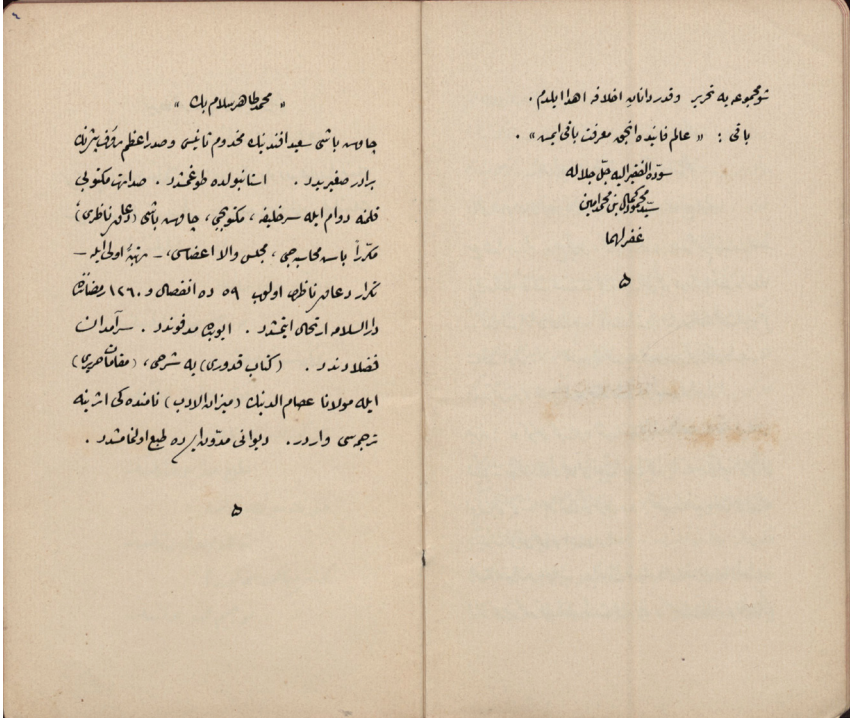 شو مجموعه‌یه تحریر و قدردانان اخلافه اهدا ایلدم .
باقی : « عالم فانیده انجق معرفت باقی ایمس » .
سوّده الفقیر الیه جلّ جلاله
سیّد محمود کمال بن محمد امین
غفر لهما
۵
« محمد طاهر سلام بك »
چاوش باشی سعید افندینك مخدوم ثانیسی و صدر اعظم رؤف پاشانك
برادر صغیریدر . استانبولده طوغمشدر . صدارت مكتوبی
قلمنه دوام ایله سر خلیفه ، مكتوبجی ، چاوش باشی (دعاوی ناظری)
مكرّراً باش محاسبه‌جی ، مجلس والا اعضاسی ، - رتبهٔ اولی ایله -
تكرار دعاوی ناظری اولوب ۵۹ ده انفصال و ۱۲٦۰ رمضاننده
دار السلامه ارتحال ایتمشدر . ایوبده مدفوندر . سرآمدان
فضلادندر . (كتاب قدوری) یه شرحی ، (مقامات حریری)
ایله مولانا عصام الدینك (میزان الادب) نامنده‌كی اثرینه
ترجمه‌سی واردر . دیوانی مدوّن ایسه‌ده طبع اولنمامشدر .
۵